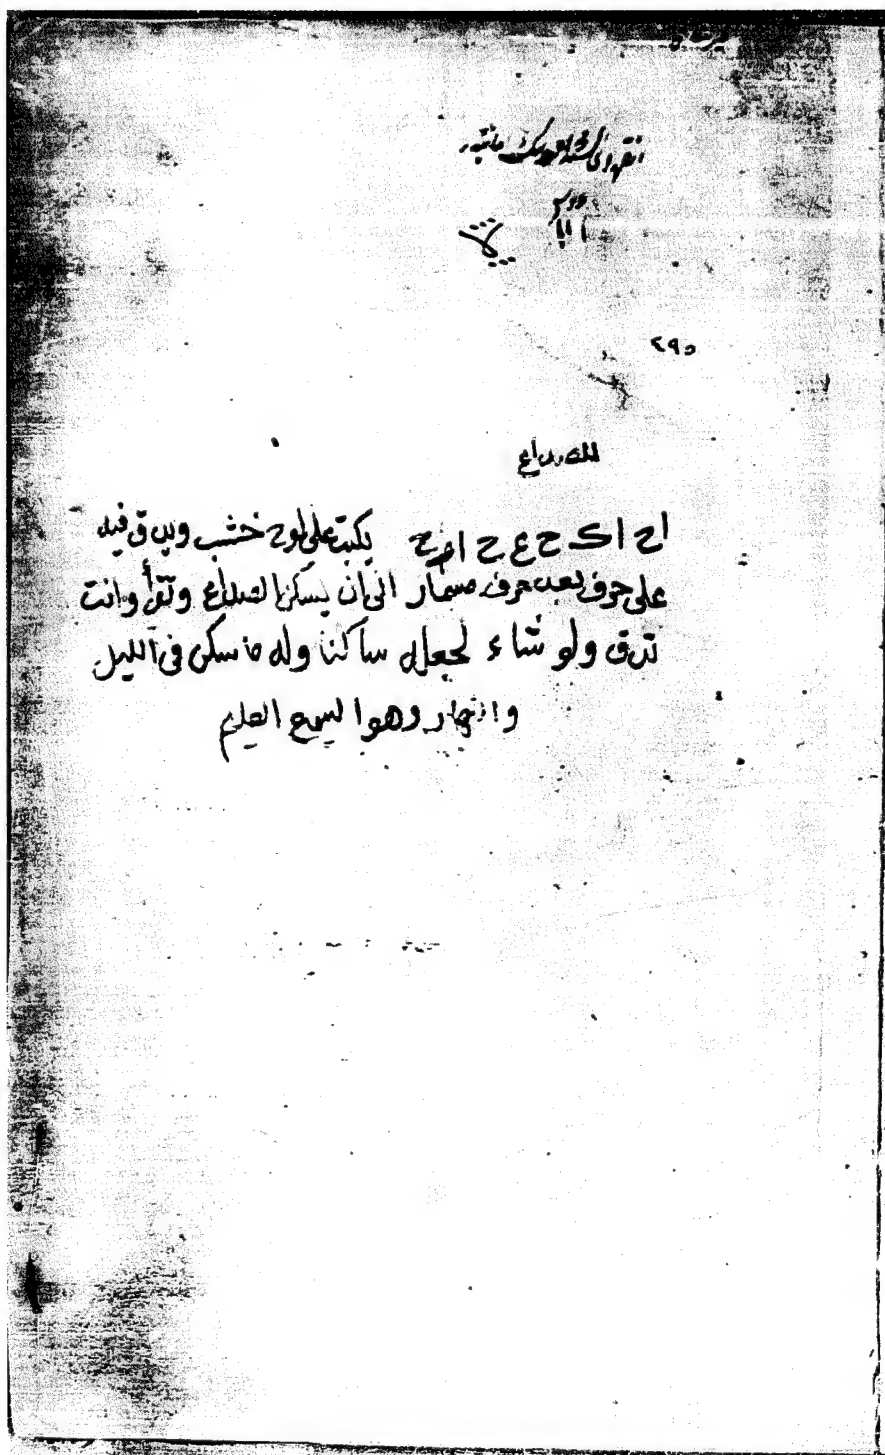 ٤٩٥
للصداع
اح اك ح ع ح ام ح يكتب على لوح خشب ويدق فيه
على حرف بعد حرف مسمار الى ان يسكن الصداع وتقرأ وانت
تدق ولو شاء لجعله ساكنا وله ما سكن في الليل
والنهار وهو السميع العليم